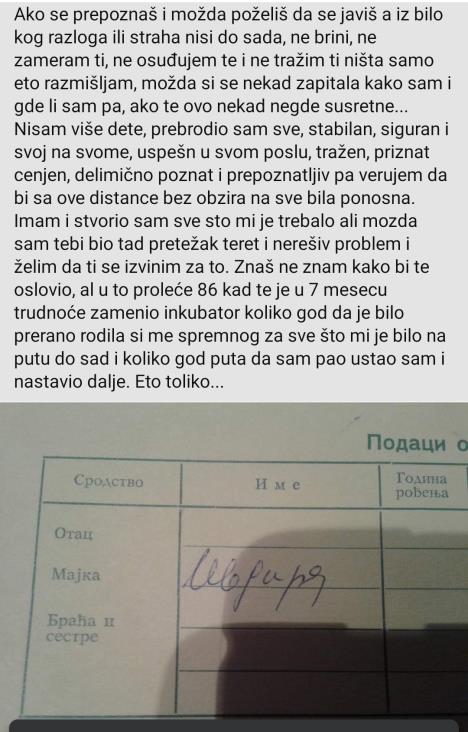 Ako se prepoznaš i možda poželiš da se javiš a iz bilo
kog razloga ili straha nisi do sada, ne brini, ne
zameram ti, ne osuđujem te i ne tražim ti ništa samo
eto razmišljam, možda si se nekad zapitala kako sam i
gde li sam pa, ako te ovo nekad negde susretne...
Nisam više dete, prebrodio sam sve, stabilan, siguran i
svoj na svome, uspešn u svom poslu, tražen, priznat
cenjen, delimično poznat i prepoznatljiv pa verujem da
bi sa ove distance bez obzira na sve bila ponosna.
Imam i stvorio sam sve sto mi je trebalo ali mozda
sam tebi bio tad pretežak teret i nerešiv problem i
želim da ti se izvinim za to. Znaš ne znam kako bi te
oslovio, al u to proleće 86 kad te je u 7 mesecu
trudnoće zamenio inkubator koliko god da je bilo
prerano rodila si me spremnog za sve što mi je bilo na
putu do sad i koliko god puta da sam pao ustao sam i
nastavio dalje. Eto toliko...
Подаци о
Сродство Име Година
рођења
Отац
Мајка
Браћа и
сестре